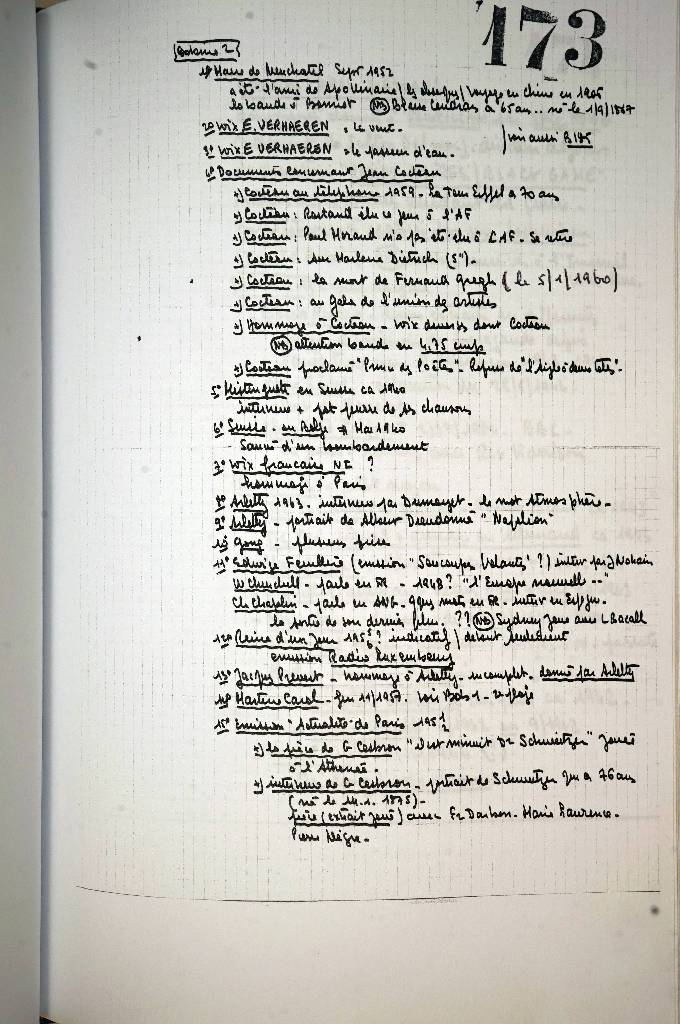 173
Bobine 2
1° Maire de Neuchatel Sept 1952
a été l'ami de Apollinaire / les obsèques / voyage en Chine en 1905
la bande à Bonnot NB Blaise Cendrars a 65 ans.. né le 1/9/1887
2° voix E. VERHAEREN . le vent.
voir aussi B175
3° voix E VERHAEREN . le passeur d'eau.
4° Documents concernant Jean Cocteau
a) Cocteau au téléphone 1959. La Tour Eiffel a 70 ans
a) Cocteau : Rostand élu ce jour à l'AF
a) Cocteau : Paul Morand n'a pas été élu à l'AF. Se retire
a) Cocteau : sur Marlene Dietrich (5").
a) Cocteau : la mort de Fernand Gregh (le 5/1/1960)
a) Cocteau : au Gala de l'union des artistes
a) Hommage à Cocteau - voix diverses dont Cocteau
NB attention bande en 4.75 cm/s
a) Cocteau proclamé "Prince des Poètes". Refus de "l'Aigle à deux têtes".
5° Mistinguett en Suisse ca 1940
interview + pot pourri de ses chansons
6° Suisse . en Mai 1940
Sauvé d'un bombardement
7° voix française NI ?
hommage à Paris
8° Arletty 1963. interview par Dumayet. le mot Atmosphère.
9° Arletty - portrait de Albert Dieudonné "Napoléon"
10° Gong - plusieurs fois
11° Edwige Feuillère (emission "Soucoupes Volantes" ?) interv par J Nohain
W Churchill - parle en FR - 1948? "l'Europe nouvelle --"
Ch Chaplin - parle en ANG. qques mots en FR.
la sortie de son dernier film. ?? NB Sydney joue avec L Bacall
12° Reine d'un Jour 1955/6? indicatif / début seulement
emission Radio Luxembourg
13° Jacques Prevert - hommage à Arletty - incomplet. donné par Arletty
14° Martine Carol - 11/1957. voir Bob 1 - 2° plage
15° Emission "Actualité de Paris" 1951/2
a) la pièce de G Cesbron "Il est minuit Dr Schweitzer" jouée
à l'Athenée.
a) interview de G Cesbron - portrait de Schweitzer qui a 76 ans
(né le 14.1.1875) -
pièce (extrait joué) avec Fr Darbon. Marie Laurence.
Pierre Nègre.